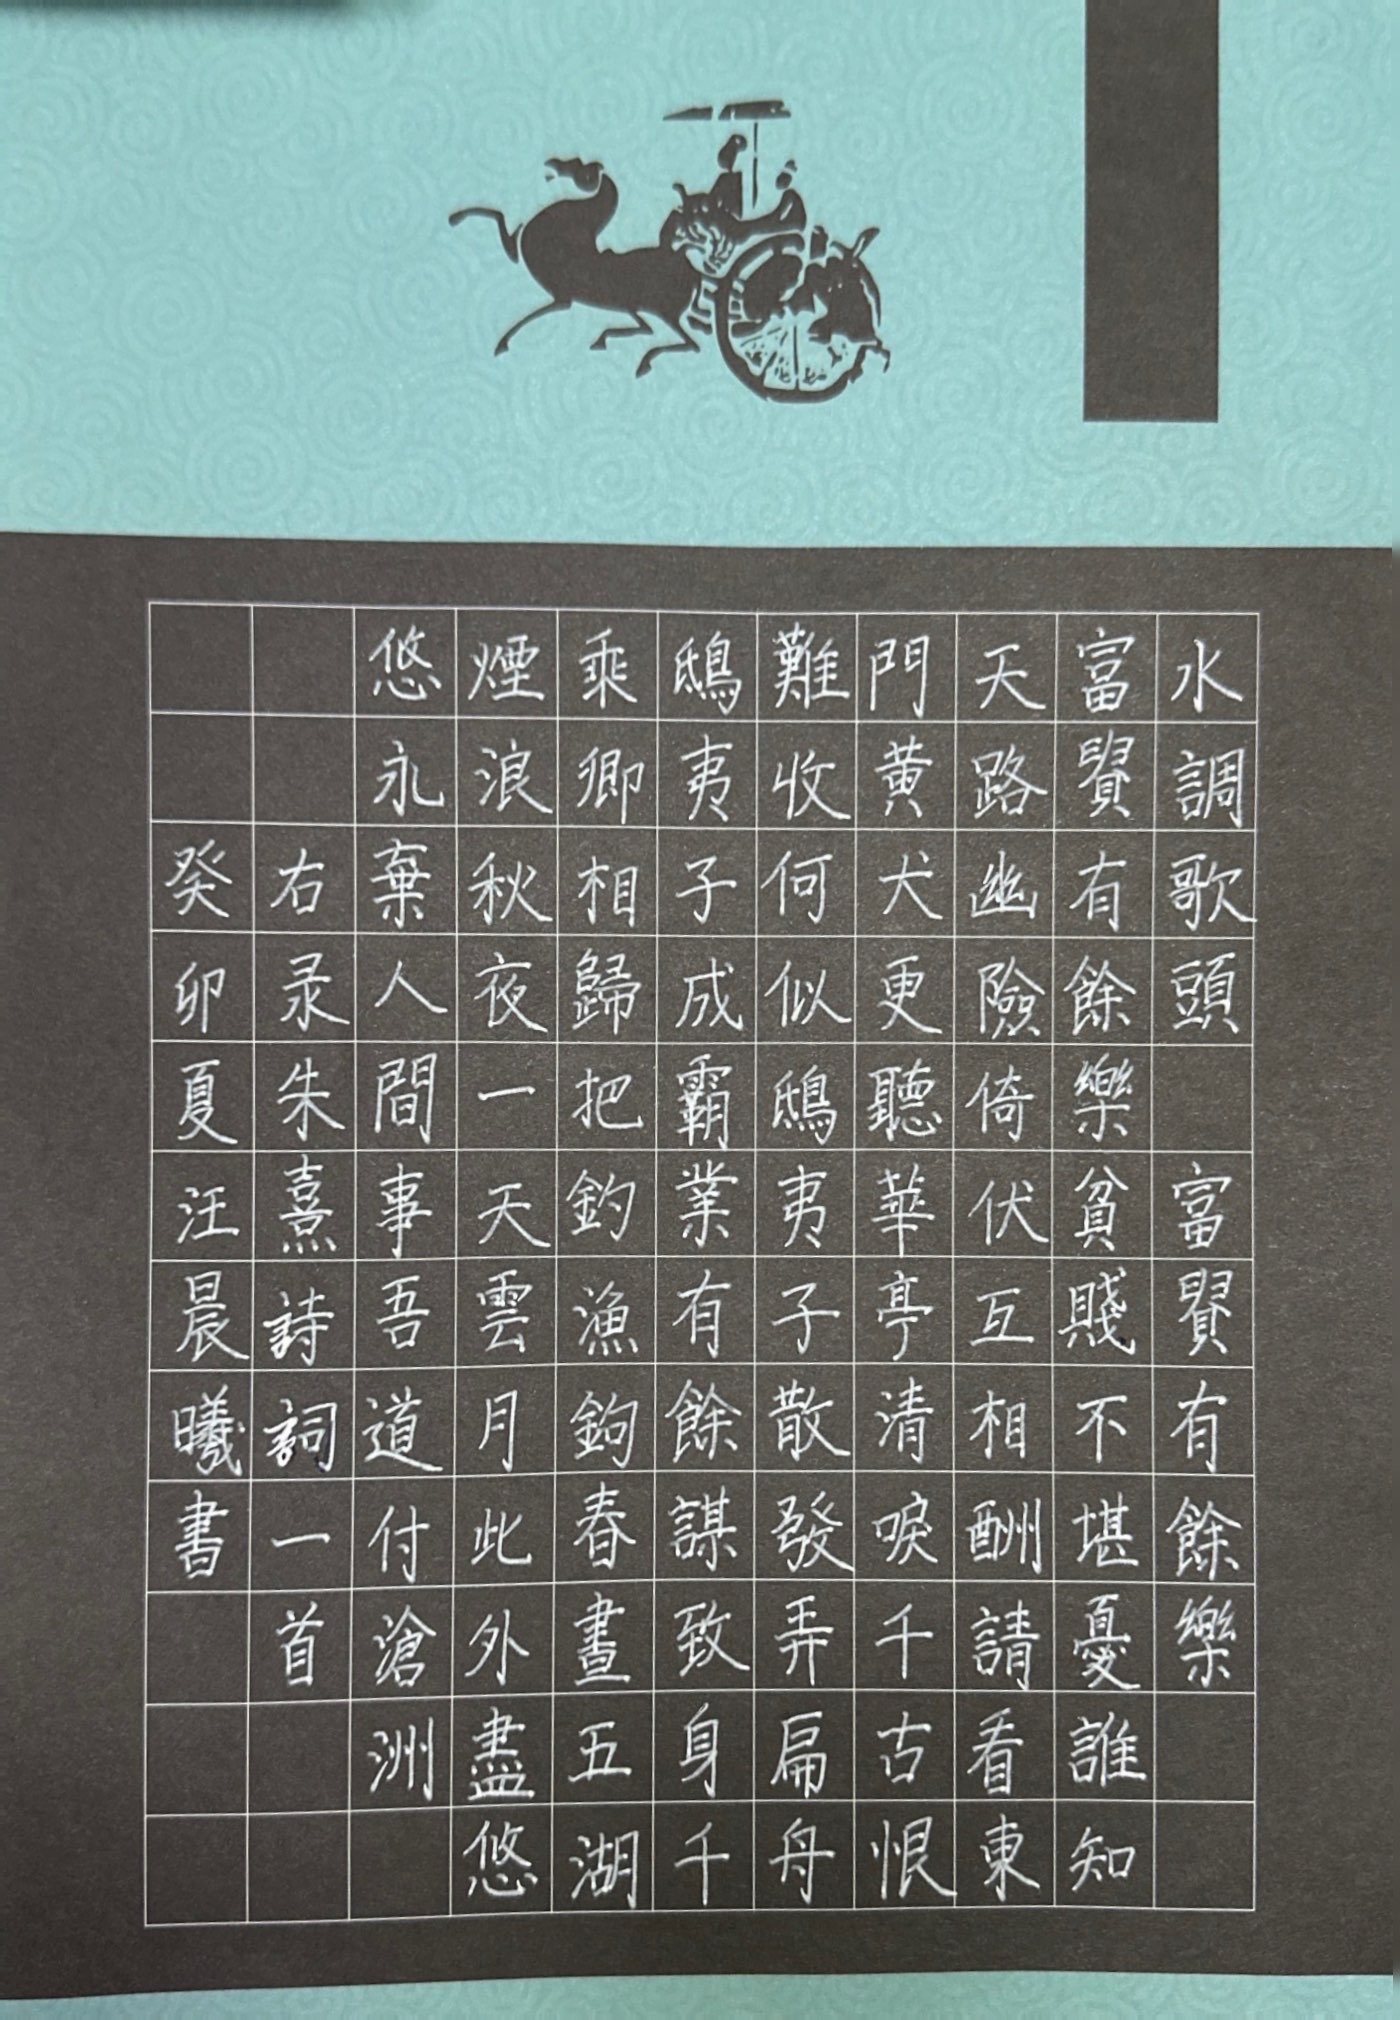 水調歌頭 富貴有餘樂
富貴有餘樂貧賤不堪憂誰知
天路幽險倚伏互相酬請看東
門黄犬更聽華亭清唳千古恨
難收何似鴟夷子散發弄扁舟
鴟夷子成霸業有餘謀致身千
乘卿相歸把釣漁鉤春晝五湖
煙浪秋夜一天雲月此外盡悠
悠永棄人間事吾道付滄洲
右录朱熹詩詞一首
癸卯夏汪晨曦書